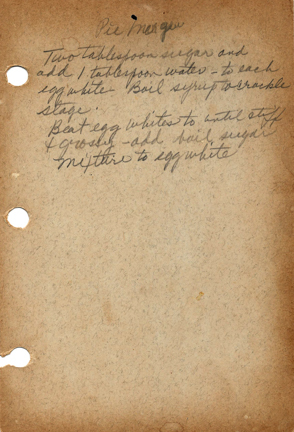 Pie Meringue
Two tablespoon sugar and
add 1 tablespoon water - to each
egg white Boil syrup to crackle
stage.
Beat egg whites to until stiff
& grosny - add boil sugar
mixture to egg white